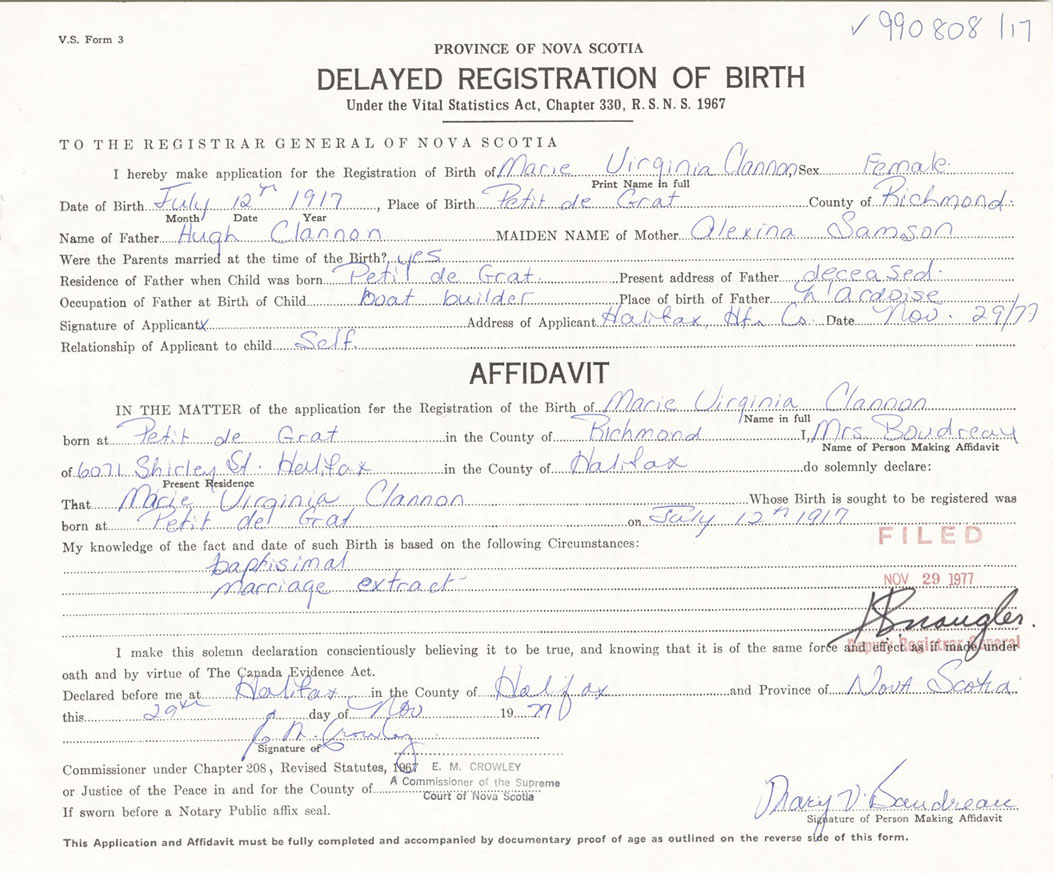 ✓ 990808 / 17
V.S. Form 3
PROVINCE OF NOVA SCOTIA
DELAYED REGISTRATION OF BIRTH
Under the Vital Statistics Act, Chapter 330, R. S. N. S. 1967
TO THE REGISTRAR GENERAL OF NOVA SCOTIA
I hereby make application for the Registration of Birth of Marie Virginia Clannon, Sex Female
Print Name in full
Date of Birth July 12th 1917, Place of Birth Petit de Grat County of Richmond
Month Date Year
Name of Father Hugh Clannon MAIDEN NAME of Mother Alexina Samson
Were the Parents married at the time of the Birth? yes
Residence of Father when Child was born Petit de Grat Present address of Father deceased
Occupation of Father at Birth of Child boat builder Place of birth of Father L'Ardoise
Signature of Applicant X Address of Applicant Halifax, Hfx Co. Date Nov. 29/77
Relationship of Applicant to child Self
AFFIDAVIT
IN THE MATTER of the application for the Registration of the Birth of Marie Virginia Clannon
Name in full
born at Petit de Grat in the County of Richmond I, Mrs. Boudreau
Name of Person Making Affidavit
of 6071 Shirley St. Halifax in the County of Halifax do solemnly declare:
Present Residence
That Marie Virginia Clannon Whose Birth is sought to be registered was
born at Petit de Grat on July 12th 1917
My knowledge of the fact and date of such Birth is based on the following Circumstances:
baptisimal
marriage extract
FILED
NOV 29 1977
Deputy Registrar General
I make this solemn declaration conscientiously believing it to be true, and knowing that it is of the same force and effect as if made under
oath and by virtue of The Canada Evidence Act.
Declared before me at Halifax in the County of Halifax and Province of Nova Scotia
this 29th day of Nov 1977
E. M. Crowley
Signature of
Commissioner under Chapter 208, Revised Statutes, 1967 E. M. CROWLEY
or Justice of the Peace in and for the County of A Commissioner of the Supreme
Court of Nova Scotia
If sworn before a Notary Public affix seal.
Mary V. Boudreau
Signature of Person Making Affidavit
This Application and Affidavit must be fully completed and accompanied by documentary proof of age as outlined on the reverse side of this form.